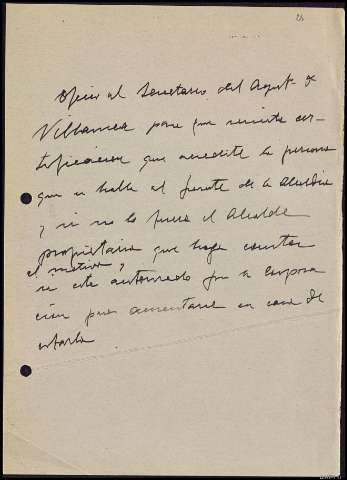 Oficio al Secretario del Ayunt. de
Villamea para que remita cer-
tificacion que acredite la persona
que se halla al frente de la Alcaldia
y si no lo fuera el Alcalde
propietario, que haga constar
el motivo y
si este autorizado por la Corpora
ción para ausentarse en caso de
estarlo